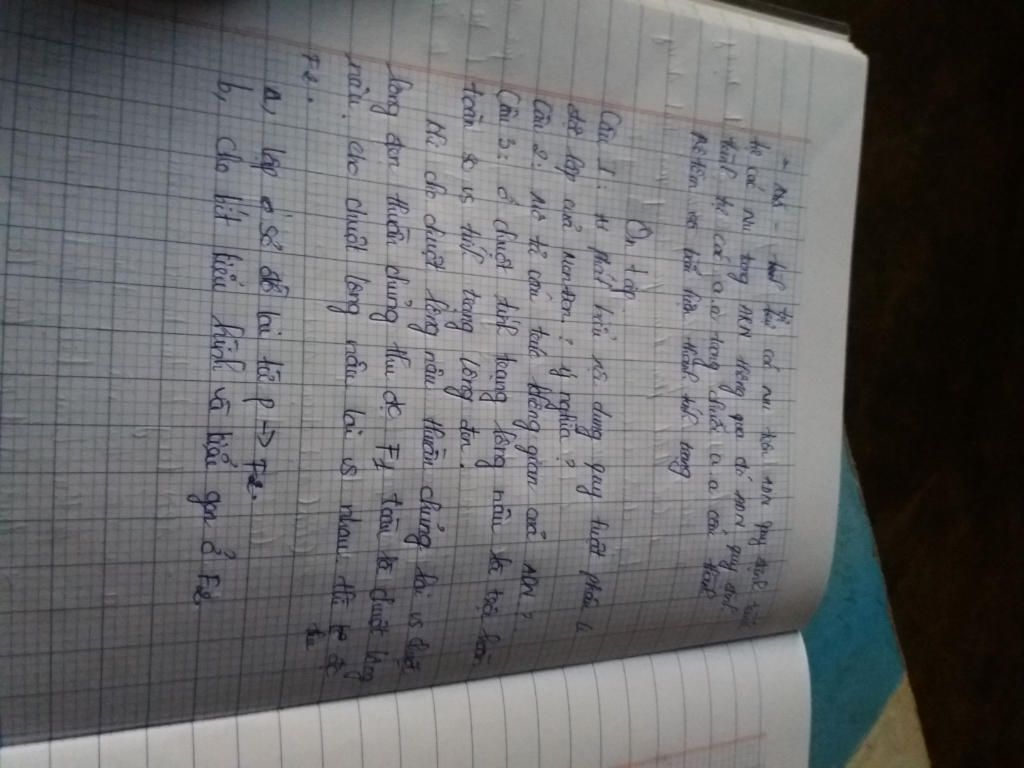 trình tự các nu trên ADN quy định trình
tự các nu trong ARN thông qua đó ARN quy định
trình tự các a.a trong chuỗi a.a cấu thành
Prôtêin và biểu hiện thành tính trạng
Ôn tập
Câu 1: phát biểu nội dung quy luật phân li
độc lập của Menđen? ý nghĩa?
Câu 2: Mô tả cấu trúc không gian của ADN?
Câu 3: ở chuột tính trạng lông nâu là trội hoàn
toàn so vs tính trạng lông đen.
Khi cho chuột lông nâu thuần chủng lai vs chuột
lông đen thuần chủng thu đc F1 toàn là chuột lông
nâu. cho chuột lông nâu lai vs nhau thì thu đc
F2.
a, lập sơ đồ lai từ P -> F2.
b, cho biết kiểu hình và kiểu gen ở F2